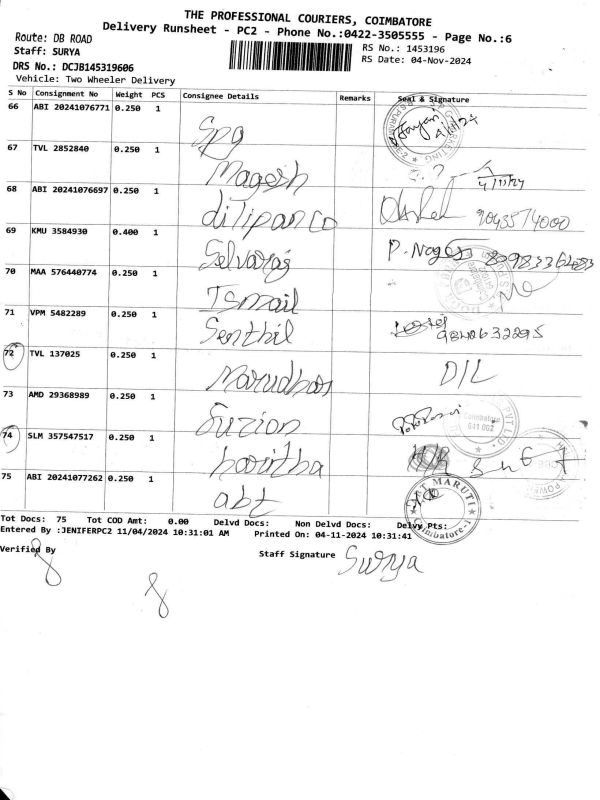 THE PROFESSIONAL COURIERS, COIMBATORE
Delivery Runsheet - PC2 - Phone No.:0422-3505555 - Page No.:6
Route: DB ROAD
RS No.: 1453196
Staff: SURYA
RS Date: 04-Nov-2024
DRS No.: DCJB145319606
Vehicle: Two Wheeler Delivery
S No Consignment No Weight PCS Consignee Details Remarks Seal & Signature
66 ABI 20241076771 0.250 1 Spg
67 TVL 2852840 0.250 1 Magesh 4/11/24
68 ABI 20241076697 0.250 1 dilipan co 9043574000
69 KMU 3584930 0.400 1 Selvaraj P. Nages
70 MAA 576440774 0.250 1 Ismail
71 VPM 5482289 0.250 1 Senthil
72 TVL 137025 0.250 1 Marudhar D/L
73 AMD 29368989 0.250 1 Coimbatore 641 002
74 SLM 357547517 0.250 1 haritha
75 ABI 20241077262 0.250 1 abt MARUTI Coimbatore-1
Tot Docs: 75 Tot COD Amt: 0.00 Delvd Docs: Non Delvd Docs: Delvy Pts:
Entered By :JENIFERPC2 11/04/2024 10:31:01 AM Printed On: 04-11-2024 10:31:41
Verified By
Staff Signature Surya